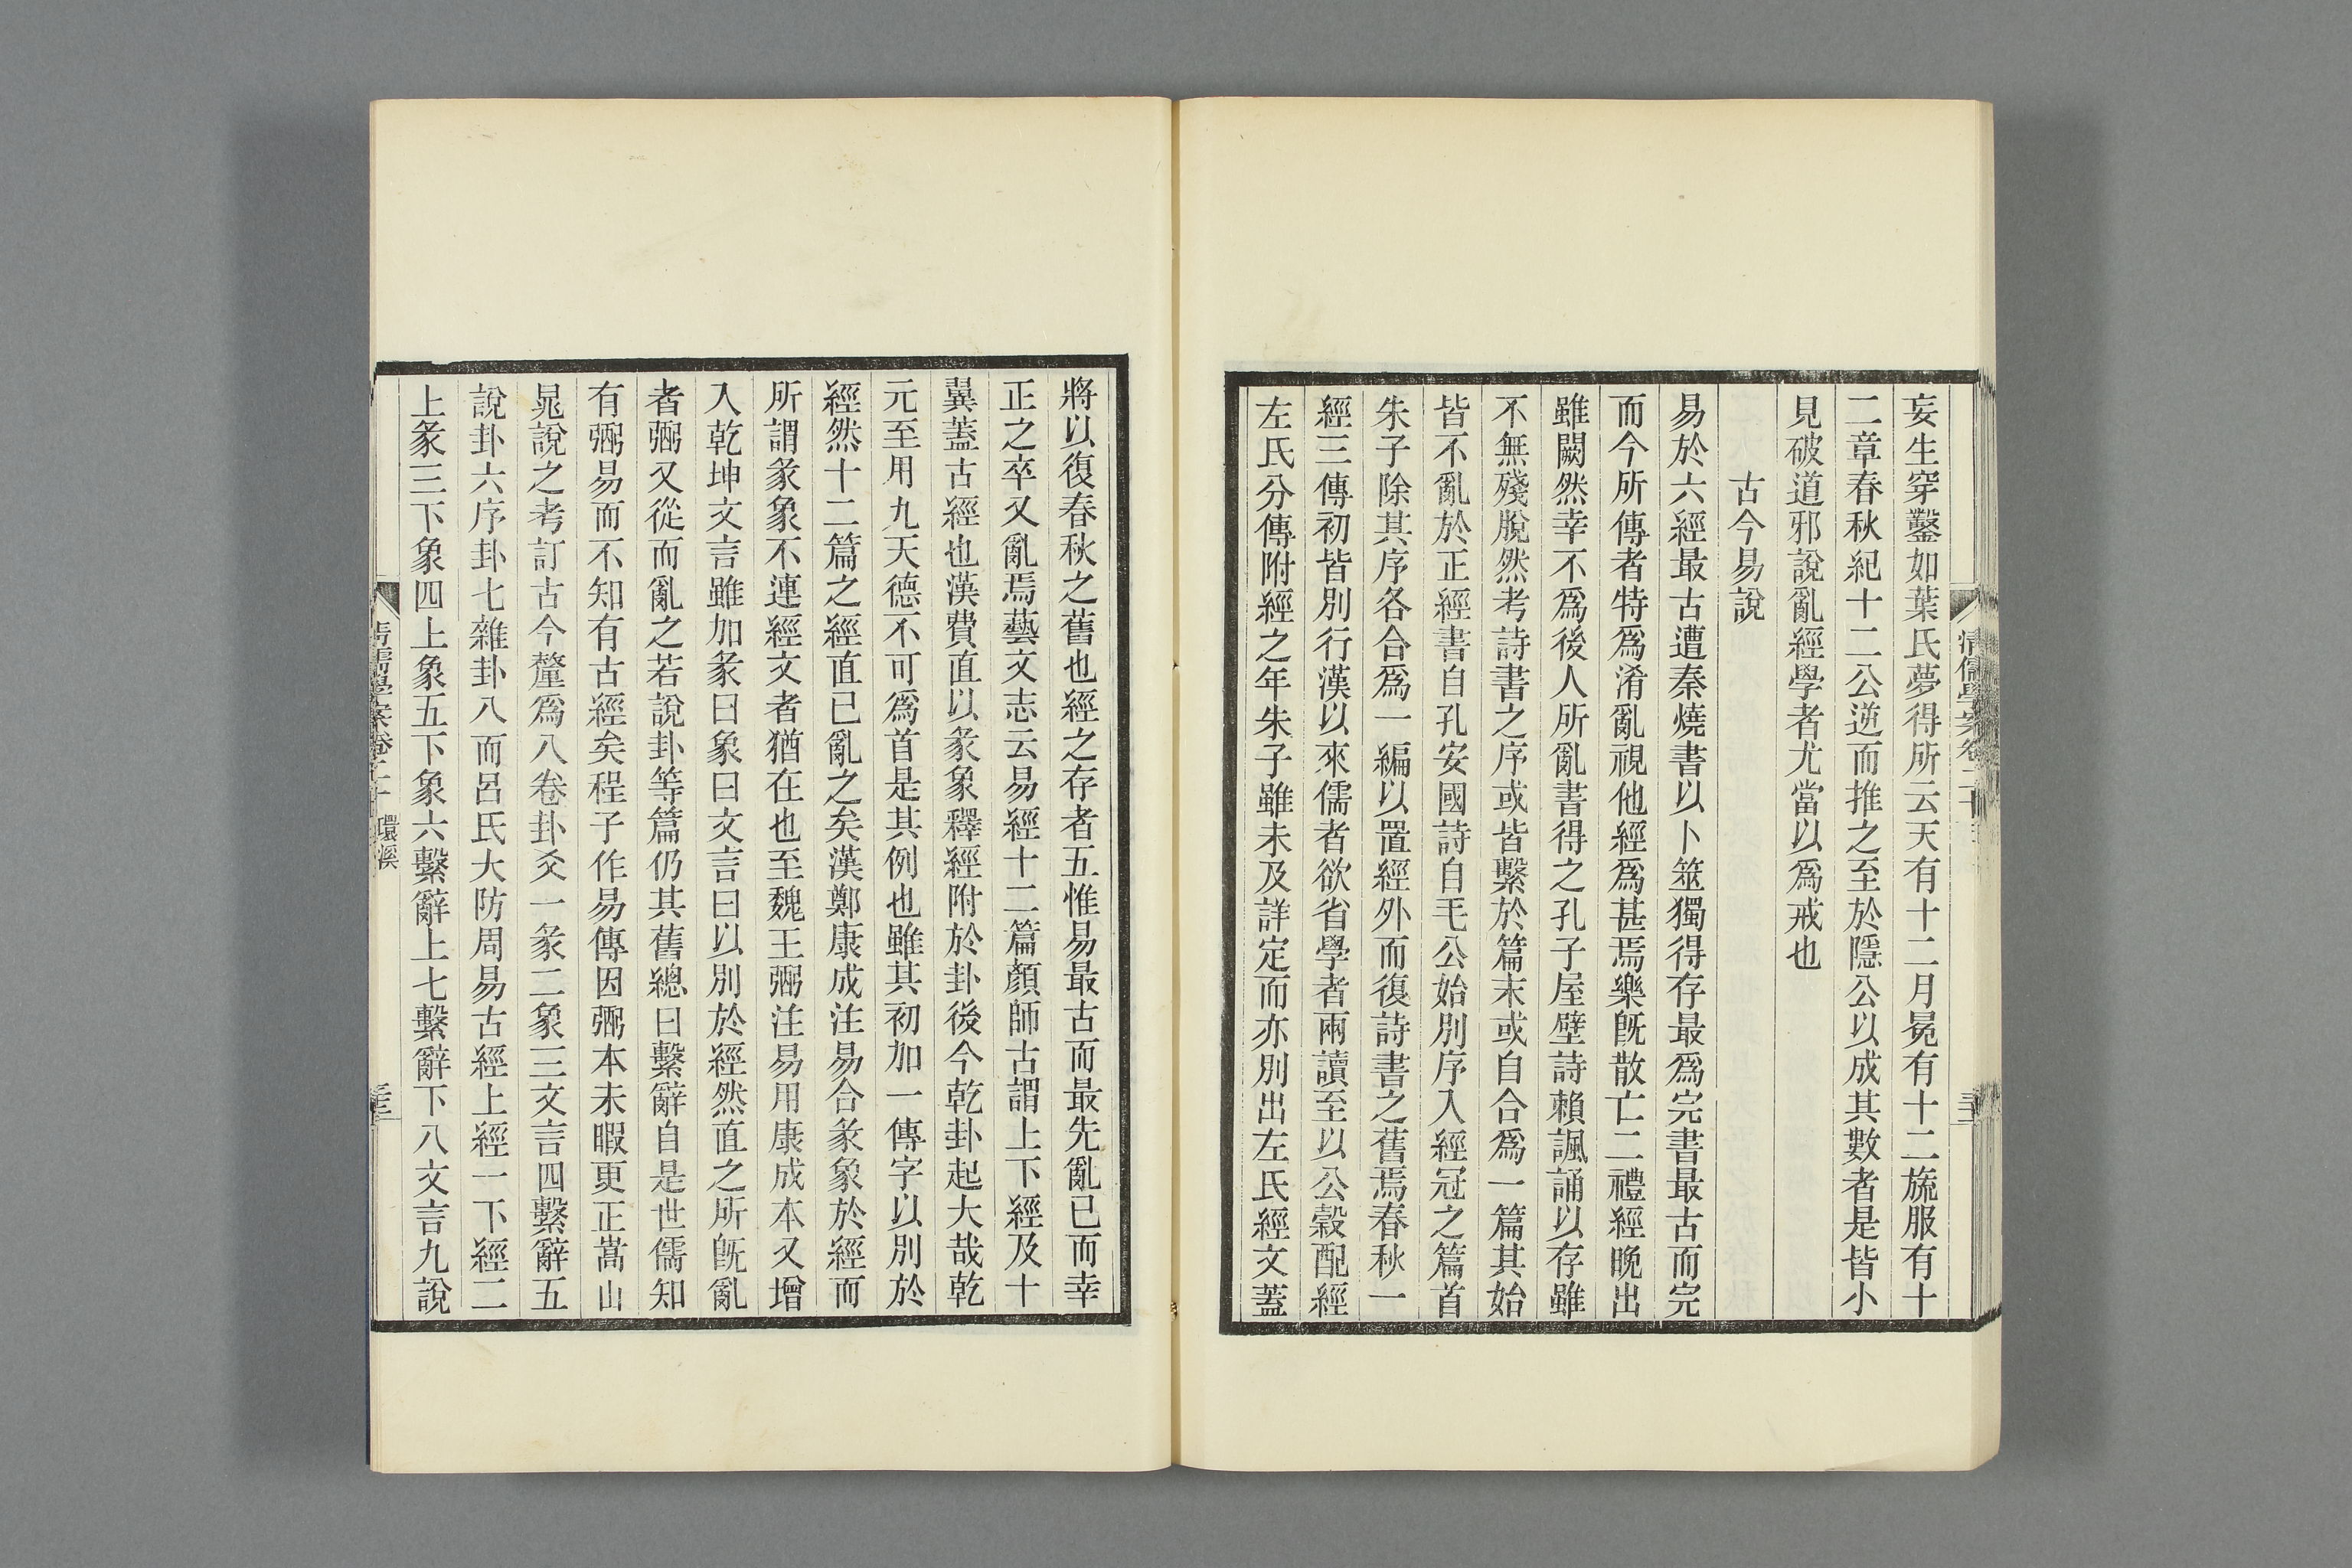 妄生穿鑿如葉氏夢得所云天有十二月冕有十二旒服有十
二章春秋紀十二公逆而推之至於隱公以成其數者是皆小
見破道邪說亂經學者尤當以爲戒也
古今易說
易於六經最古遭秦燒書以卜筮獨得存最爲完書最古而完
而今所傳者特爲淆亂視他經爲甚焉樂旣散亡二禮經晚出
雖闕然幸不爲後人所亂書得之孔子屋壁詩賴諷誦以存雖
不無殘脫然考詩書之序或皆繫於篇末或自合爲一篇其始
皆不亂於正經書自孔安國詩自毛公始別序入經冠之篇首
朱子除其序各合爲一編以置經外而復詩書之舊焉春秋一
經三傳初皆別行漢以來儒者欲省學者兩讀至以公穀配經
左氏分傳附經之年朱子雖未及詳定而亦別出左氏經文蓋
將以復春秋之舊也經之存者五惟易最古而最先亂已而幸
正之卒又亂焉藝文志云易經十二篇顏師古謂上下經及十
翼蓋古經也漢費直以彖象釋經附於卦後今乾卦起大哉乾
元至用九天德不可爲首是其例也雖其初加一傳字以別於
經然十二篇之經直已亂之矣漢鄭康成注易合彖象於經而
所謂彖象不連經文者猶在也至魏王弼注易用康成本又增
入乾坤文言雖加彖曰象曰文言曰以別於經然直之所旣亂
者弼又從而亂之若說卦等篇仍其舊總曰繫辭自是世儒知
有弼易而不知有古經矣程子作易傳因弼本未暇更正嵩山
晁說之考訂古今釐爲八卷卦爻一彖二象三文言四繫辭五
說卦六序卦七雜卦八而呂氏大防周易古經上經一下經二
上彖三下象四上象五下象六繫辭上七繫辭下八文言九說
環溪